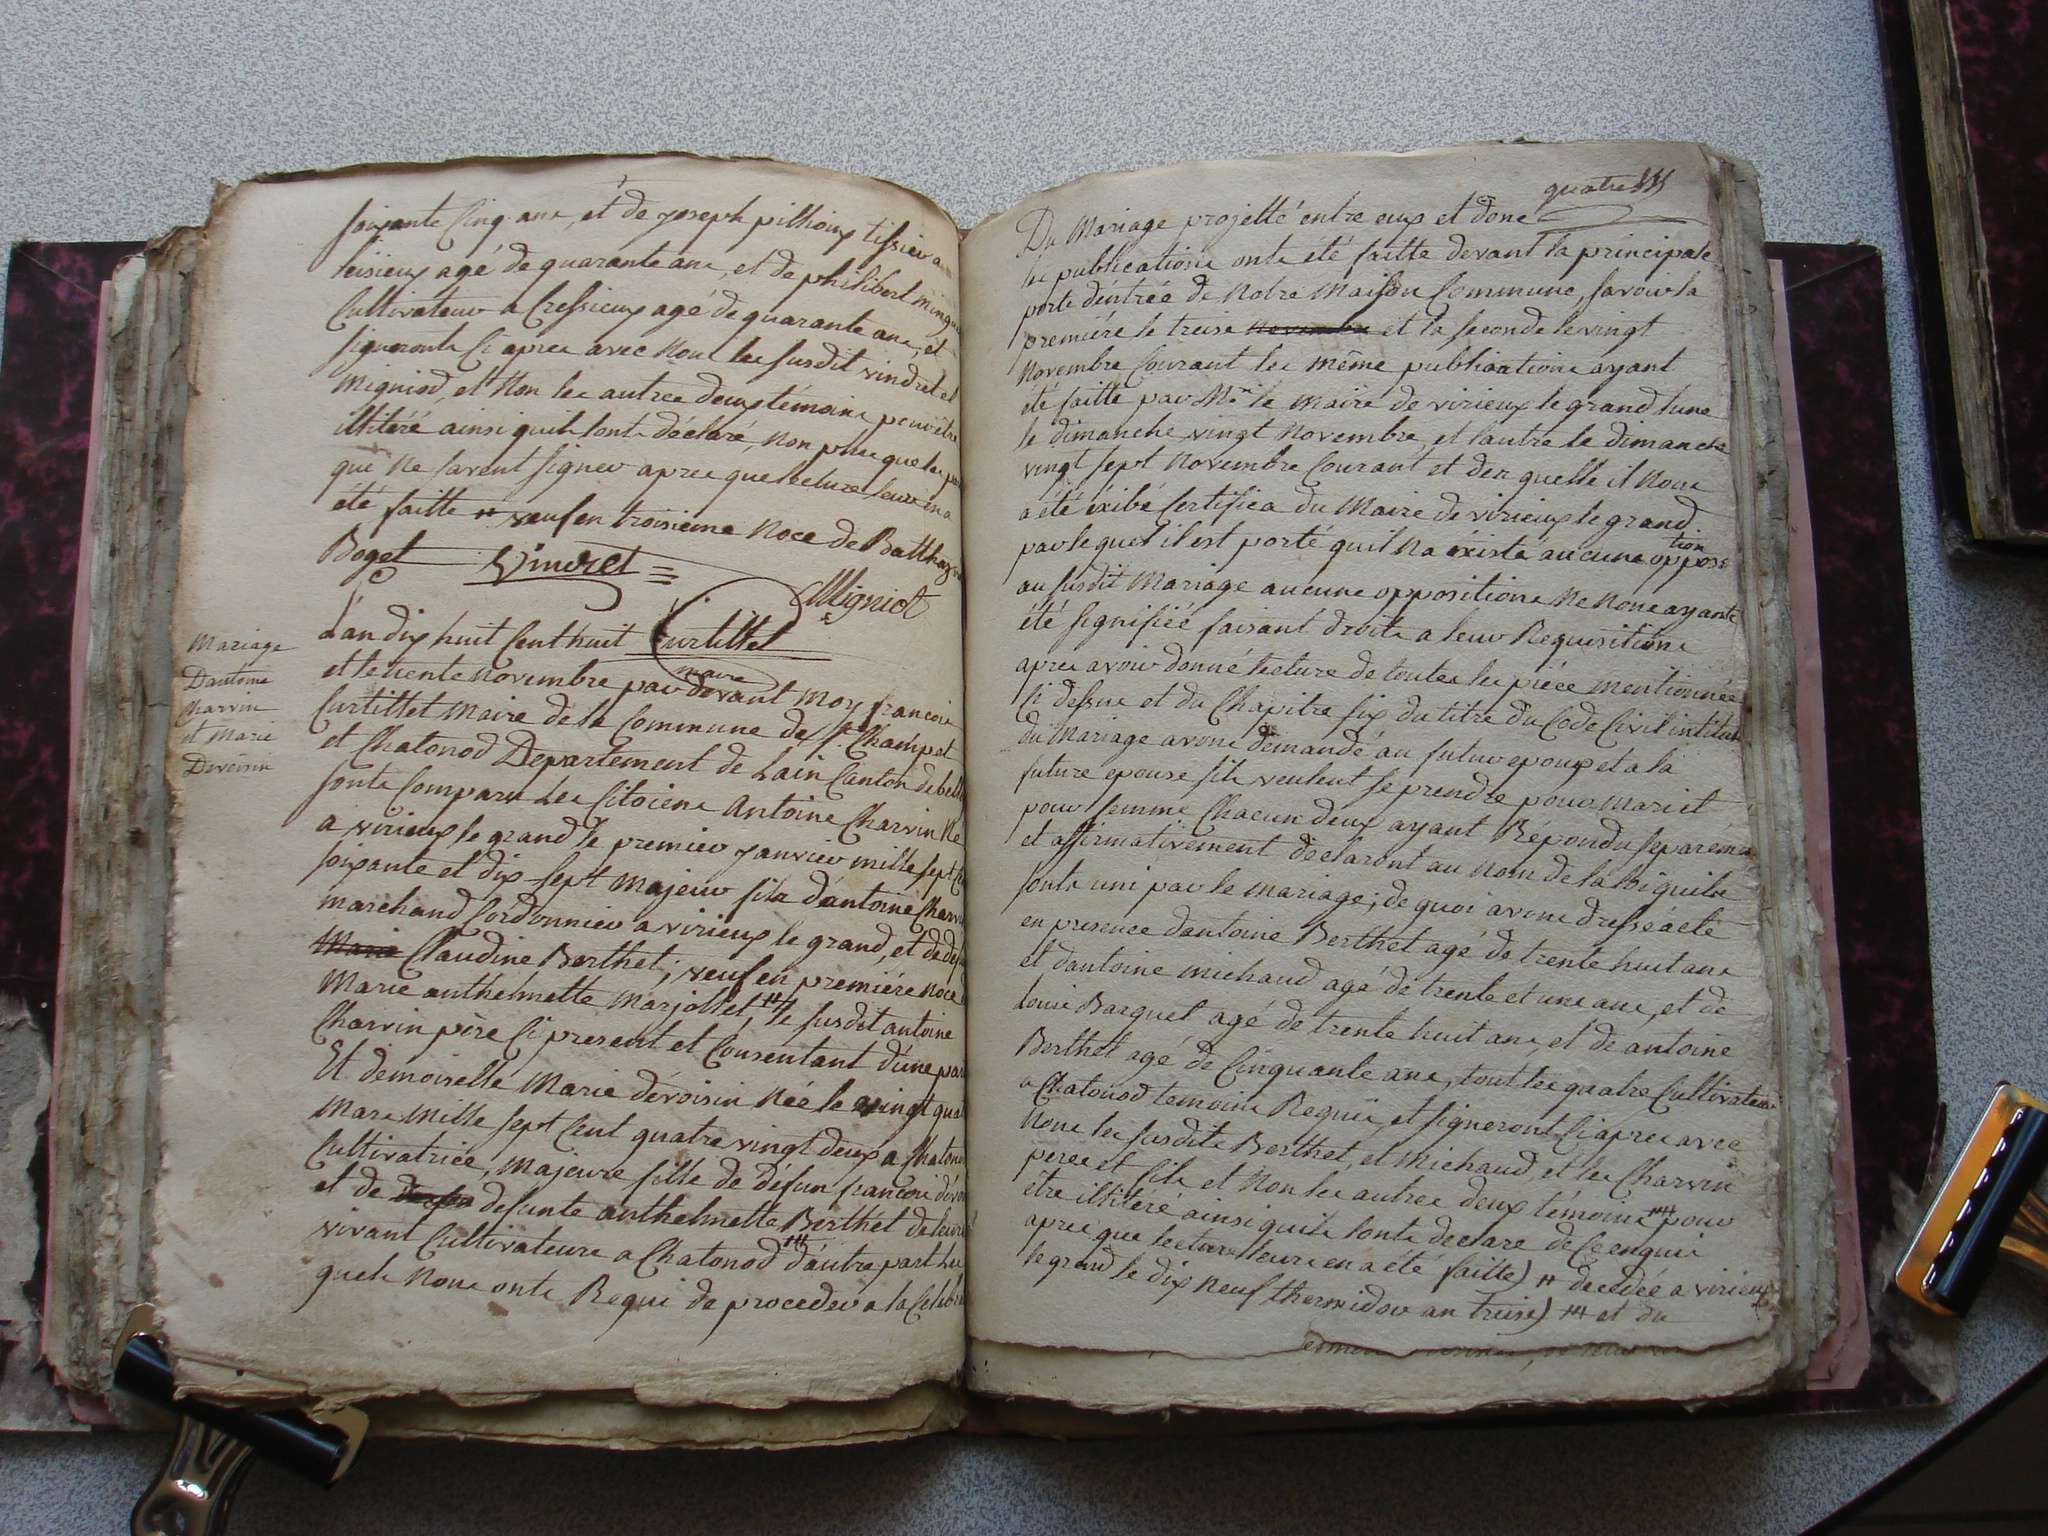 soixante cinq ans, et de joseph pilhioux tissier a
seisieux agé de quarante ans, et de philibert mingu
Cultivateur a Cressieux agé de quarante ans, et
signeronts ci apres avec Nous les susdit vindret et
Migniod, et Non les autres deux témoins pour être
illitéré ainsi quils lonts déclaré, Non plus que les
qui Ne savent signer apres que lecture leurs en a
été faitte # veuf en troisieme Noce de Balthaz
Boget Vindret
CMigniot
Mariage
Dantoine
Charvin
et Marie
Devoisin
L'an dix huit Cent huit Curtillet
maire
et le trente Novembre par devant Moy françois
Curtillet Maire de la Commune de St Champt
et Chatonod Departement de Lain Canton de bell
sonts Comparu Les Citoiens Antoine Charvin Ne
a virieux le grand le premier janvier mille sept C
soixante et dix sept majeur fils d'antoine Charv
marchand Cordonnier a virieux le grand, et de def
Marie Claudine Berthet, veuf en premiére Noce
Marie anthelmette Marjollet, # le susdit antoine
Charvin père Ci present et Consentant d'une par
Et demoiselle Marie dévoisin Née le vingt qua
Mars Mille sept Cent quatre vingt deux a Chaton
Cultivatrice, Majeure fille de défun françois dévo
et de defunte anthelmette Berthet de leurs
vivant Cultivateurs a Chatonod ## d'autre part Les
quels Nous onts Requi de proceder a la Celebra
quatre
Du Mariage projetté entre eux et dont
les publications onts été faitte devant la principale
porte dentrée de Notre Maison Commune, savoir la
premiére le treise Novembre et la seconde le vingt
Novembre Courant les même publications ayant
été faitte par Mr le Maire de virieux le grand lune
le dimanche vingt Novembre, et lautre le dimanche
vingt sept Novembre Courant et des quelle il Nous
a été exibé Certificat du Maire de virieux le grand
par le quel il est porté quil Na existé aucune opposi
tion
au susdit Mariage aucune oppositions Ne Nous ayants
été signifiée faisant droits a leur Requisitions
apres avoir donné lecture de toutes les piéce mentionnée
Ci dessus et du Chapitre six du titre du Code Civil intitulé
du Mariage avons demandé au futur epoux et a la
future epouse sils veulent se prendre pour Mari et
pour femme Chacun deux ayant Répondu séparemen
et affirmativement declaronts au Nom de la loi quils
sonts uni par le mariage; de quoi avons dressé acte
en presence dantoine Berthet agé de trente huit ans
et dantoine michaud agé de trente et un ans, et de
louis Barquet agé de trente huit ans, et de antoine
Berthet agé de Cinquante ans, tout les quatre Cultivateur
a Chatonod temoins Requis, et signeront Ci apres avec
Nous les susdits Berthet, et Michaud, et les Charvin
peres et fils et Non les autres deux témoins pour
etre illitéré ainsi quils lonts declare de Ce enquis
apres que lecture leurs en a été faitte) # decedée a virieux
le grand le dix neuf thermidor an treise) ## et du